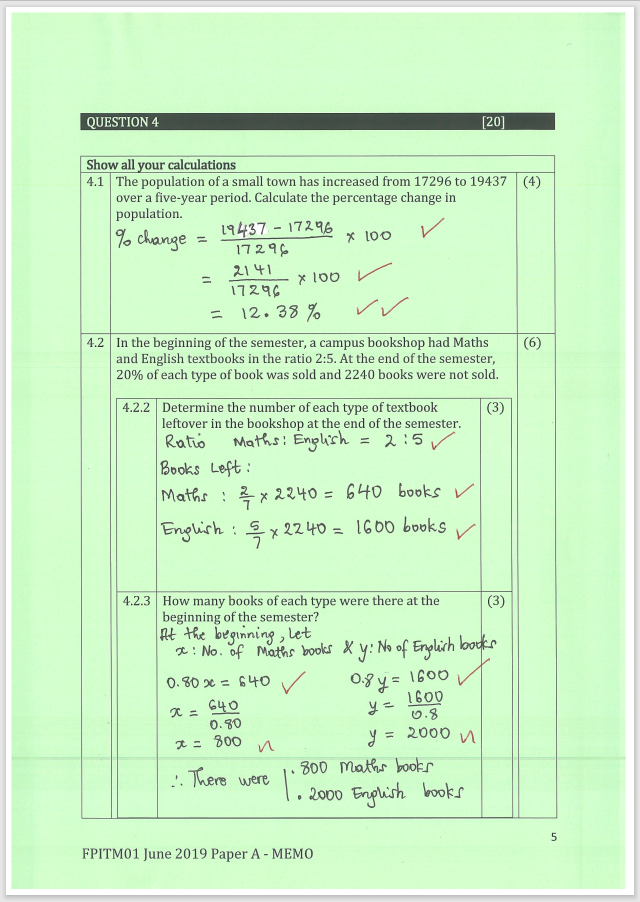 QUESTION 4 [20]
Show all your calculations
4.1 The population of a small town has increased from 17296 to 19437 (4)
over a five-year period. Calculate the percentage change in
population.
% change = 19437 - 17296 / 17296 × 100 ✓
= 2141 / 17296 × 100 ✓
= 12.38 % ✓✓
4.2 In the beginning of the semester, a campus bookshop had Maths (6)
and English textbooks in the ratio 2:5. At the end of the semester,
20% of each type of book was sold and 2240 books were not sold.
4.2.2 Determine the number of each type of textbook (3)
leftover in the bookshop at the end of the semester.
Ratio Maths : English = 2 : 5 ✓
Books Left :
Maths : 2/7 × 2240 = 640 books ✓
English : 5/7 × 2240 = 1600 books ✓
4.2.3 How many books of each type were there at the (3)
beginning of the semester?
At the beginning, let
x : No. of Maths books & y : No of English books
0.80 x = 640 ✓ 0.8 y = 1600 ✓
x = 640 / 0.80 y = 1600 / 0.8
x = 800 y = 2000
∴ There were . 800 Maths books
. 2000 English books
5
FPITM01 June 2019 Paper A - MEMO